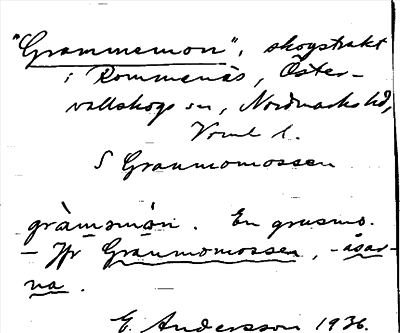 "Grammemon", skogstrakt
i Rommenäs, Öster-
vallskogs sn, Nordmarks hd,
Vrml. l.
S Granmomossen
gràmomån. En grusmo.
– Jfr Granmomossen, -åsar-
na.
E. Andersson 1936.